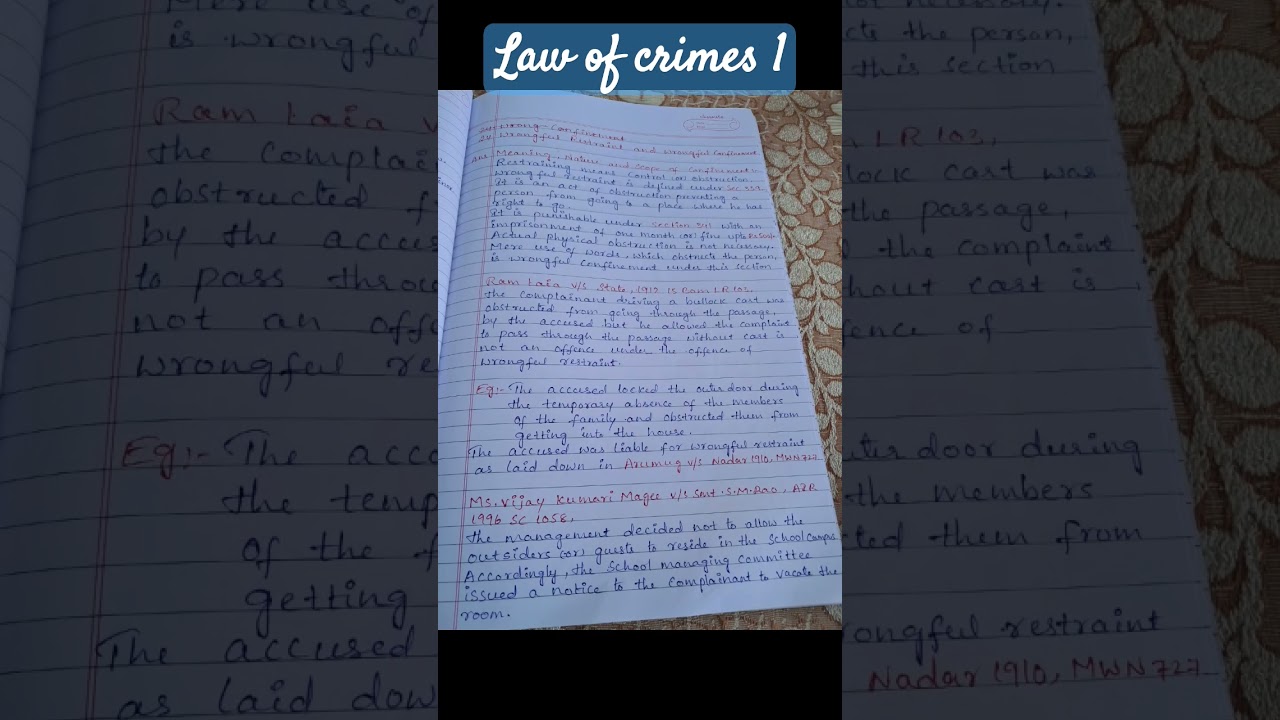 Law of crimes 1
Wrong-Confinement
Wrongful Restraint and Wrongful Confinement
ans Meaning, Nature and Scope of Confinement:-
Restraining means Control (or) obstruction.
Wrongful restraint is defined under Sec 339.
It is an act of obstruction preventing a
person from going to a place where he has
right to go.
It is punishable under section 341 with an
imprisonment of one month (or) fine upto
Actual Physical obstruction is not necessary.
Mere use of words, which obstructs the person,
is wrongful confinement under this section
Ram Lala v/s State, 1912 15 Bom LR 103,
the complainant driving a bullock cast was
obstructed from going through the passage,
by the accused but he allowed the complaint
to pass through the passage without cast is
not an offence under the offence of
wrongful restraint.
Eg:- The accused locked the outer door during
the temporary absence of the members
of the family and obstructed them from
getting into the house.
The accused was liable for wrongful restraint
as laid down in Arumug v/s Nadar 1910, MWN 727
Ms. Vijay Kumari Magee v/s Smt. S.M. Rao, AIR
1996 SC 1058,
the management decided not to allow the
outsiders (or) guests to reside in the School Campus
Accordingly, the School managing committee
issued a notice to the Complainant to vacate the
room.